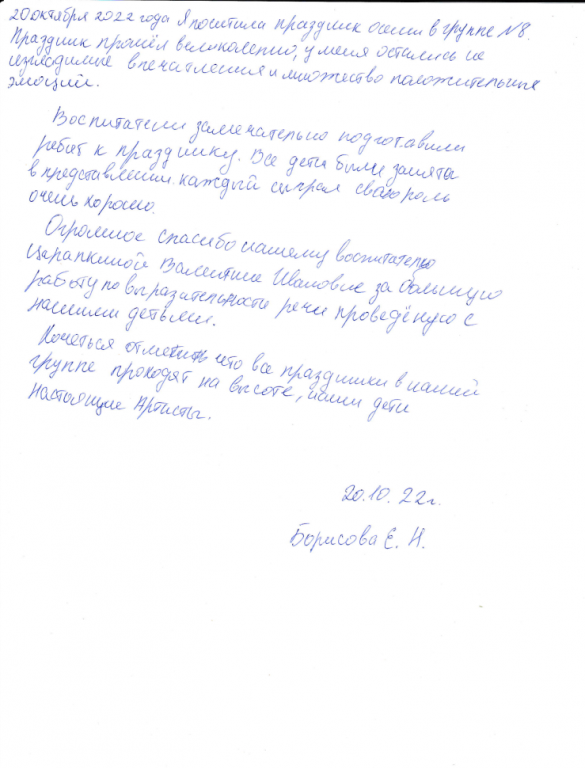 20 октября 2022 года Я посетила праздник осени в группе №8.
Праздник прошёл великолепно, у меня остались не
изгладимые впечатления и множество положительных
эмоций.
Воспитатели замечательно подготовили
ребят к празднику. Все дети были заняты
в представлении. каждый сыграл свою роль
очень хорошо.
Огромное спасибо нашему воспитателю
Царапкиной Валентине Ивановне за большую
работу по выразительности речи проведёную с
нашими детьми.
Хочеться отметить что все праздники в нашей
группе проходят на высоте, наши дети
настоящие Артисты.
20.10.22г.
Борисова Е. Н.